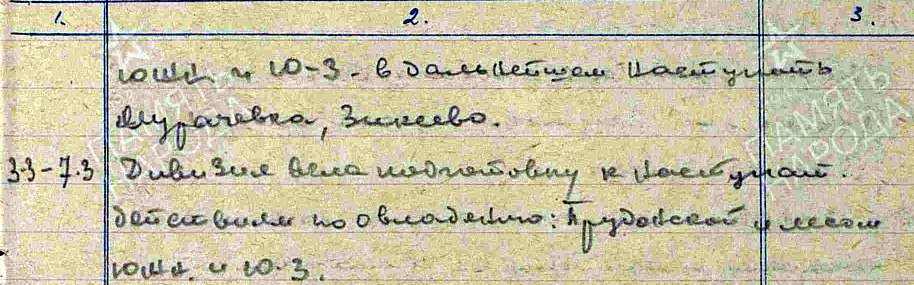 1. 2. 3.
южн. и Ю-З. в дальнейшем наступать
Мурачевка, Зикеево.
3.3-7.3 Дивизия вела подготовку к наступат.
действиям по овладению: Прудовской и лесом
южн. и Ю-З.
ПАМЯТЬ НАРОДА
ПАМЯТЬ НАРОДА